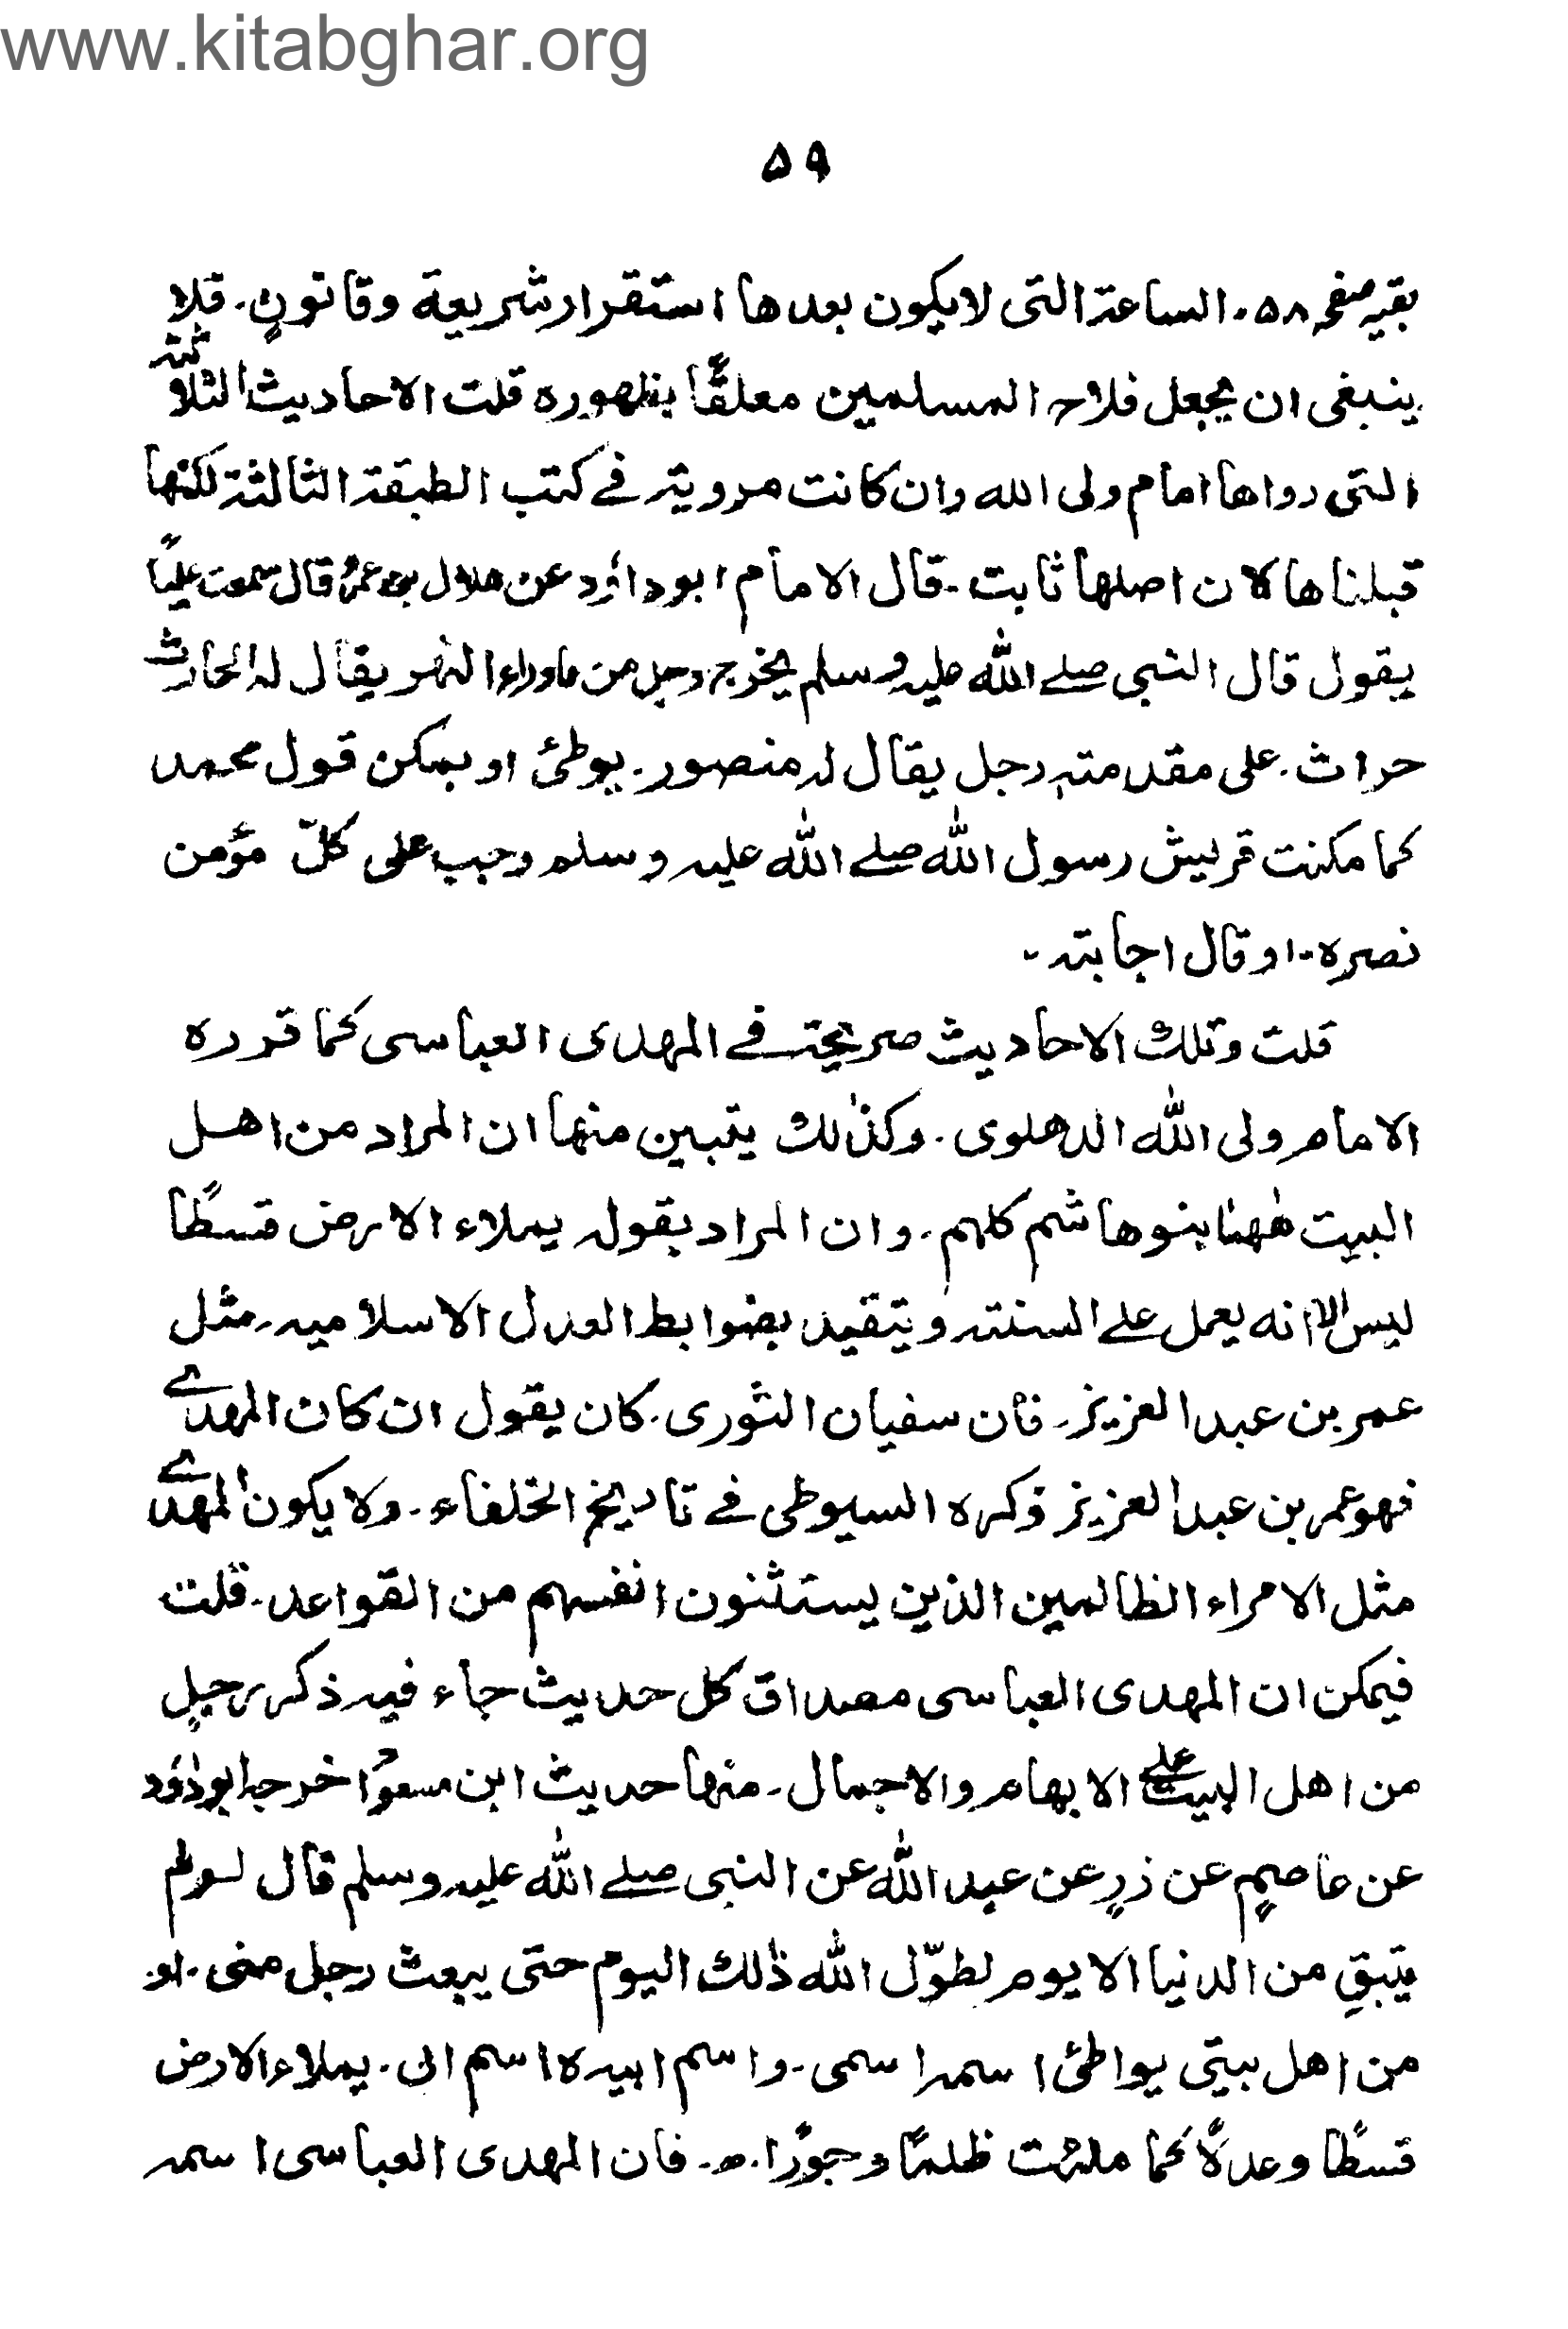 www.kitabghar.org
۵۹
بقیہ صفحہ ۵۸۔ الساعة التی لا یکون بعدها استقرار شریعة وقانونٍ۔ فلا
ینبغی ان یجعل فلاح المسلمین معلقًا بظهوره قلت الاحادیث الثلاثة
التی رواها امام ولی الله وان کانت مرویة فے کتب الطبقة الثالثة لکنها
قبلناها لان اصلها ثابت۔ قال الامام ابوداؤد عن هلال بن عمرؓ قال سمعت علیًا
یقول قال النبی صلے الله علیه وسلم یخرج رجل من ماوراء النهر یقال له الحارث
حراث۔ علی مقدمته رجل یقال له منصور۔ یوطئ او یمکن قول محمد
کما مکنت قریش رسول الله صلے الله علیه وسلم وجب علی کلّ مؤمن
نصره۔ او قال اجابته۔
قلت وتلك الاحادیث صریحة فے المهدی العباسی کما قرره
الامام ولی الله الدهلوی۔ وکذٰلك یتبین منها ان المراد من اهل
البیت هٰهنا بنوهاشم کلهم۔ وان المراد بقوله یملاء الارض قسطًا
لیس الا انه یعمل علے السنته ویتقید بضوابط العدل الاسلامیه۔ مثل
عمر بن عبد العزیز۔ فان سفیان الثوری۔ کان یقول ان کان المهدے
فهو عمر بن عبد العزیز ذکره السیوطی فے تاریخ الخلفاء۔ ولا یکون المهدے
مثل الامراء الظالمین الذین یستثنون انفسهم من القواعد۔ قلت
فیمکن ان المهدی العباسی مصداق کل حدیث جاء فیه ذکر رجلٍ
من اهل البیت علے الابهام والاجمال۔ منها حدیث ابن مسعودؓ اخرجه ابوداؤد
عن عاصمٍ عن زرٍ عن عبد الله عن النبی صلے الله علیه وسلم قال لولم
یتبقِ من الدنیا الا یوم لطوّل الله ذٰلك الیوم حتی یبعث رجل منی۔ او۔
من اهل بیتی یواطئ اسمه اسمی۔ واسم ابیه اسم ابی۔ یملاء الارض
قسطًا وعدلًا کما ملئت ظلمًا وجورًا۔ ھ۔ فان المهدی العباسی اسمه